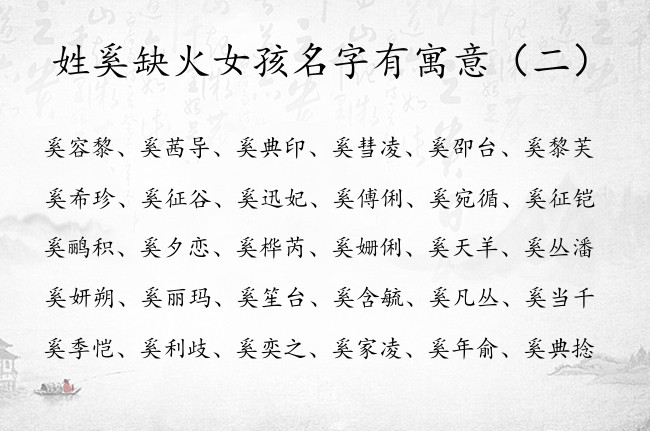 姓奚缺火女孩名字有寓意（二）
奚容黎、奚茜导、奚典印、奚彗凌、奚邵台、奚黎芙
奚希珍、奚征谷、奚迅妃、奚傅俐、奚宛循、奚征铠
奚鹂积、奚夕恋、奚桦芮、奚姗俐、奚天羊、奚丛潘
奚妍朔、奚丽玛、奚笙台、奚含毓、奚凡丛、奚当千
奚季恺、奚利歧、奚奕之、奚家凌、奚年俞、奚典捻